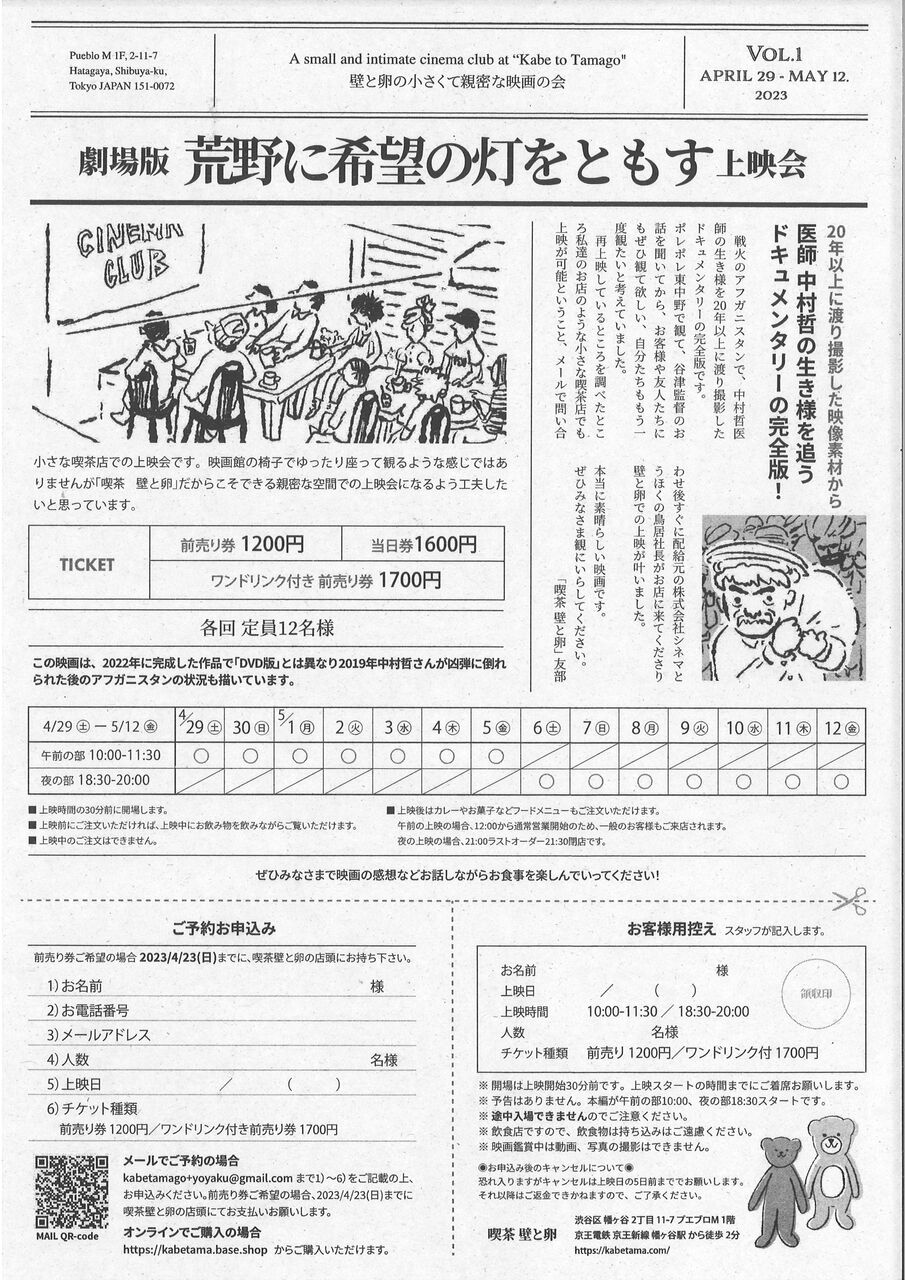 Pueblo M 1F, 2-11-7
Hatagaya, Shibuya-ku,
Tokyo JAPAN 151-0072
A small and intimate cinema club at “Kabe to Tamago"
壁と卵の小さくて親密な映画の会
VOL.1
APRIL 29 - MAY 12.
2023
劇場版 荒野に希望の灯をともす 上映会
20年以上に渡り撮影した映像素材から
医師 中村哲の生き様を追う
ドキュメンタリーの完全版！
戦火のアフガニスタンで、中村哲医
師の生き様を20年以上に渡り撮影した
ドキュメンタリーの完全版です。
ポレポレ東中野で観て、谷津監督のお
話を聞いてから、お客様や友人たちに
もぜひ観て欲しい、自分たちももう一
度観たいと考えていました。
再上映しているところを調べたとこ
ろ私達のお店のような小さな喫茶店でも
上映が可能ということ、メールで問い合
わせ後すぐに配給元の株式会社シネマと
うほくの鳥居社長がお店に来てくださり
壁と卵での上映が叶いました。
本当に素晴らしい映画です。
ぜひみなさま観にいらしてください。
「喫茶 壁と卵」友部
CINEMA
CLUB
小さな喫茶店での上映会です。映画館の椅子でゆったり座って観るような感じではあ
りませんが「喫茶 壁と卵」だからこそできる親密な空間での上映会になるよう工夫した
いと思っています。
TICKET
前売り券 1200円
当日券1600円
ワンドリンク付き 前売り券 1700円
各回 定員12名様
この映画は、2022年に完成した作品で「DVD版」とは異なり2019年中村哲さんが凶弾に倒れ
られた後のアフガニスタンの状況も描いています。
4/29㊏ー5/12㊎ 4/29㊏ 30㊐ 5/1㊊ 2㊋ 3㊌ 4㊍ 5㊎ 6㊏ 7㊐ 8㊊ 9㊋ 10㊌ 11㊍ 12㊎
午前の部 10:00-11:30 ○ ○ ○ ○ ○ ○ ○ ／ ／ ／ ／ ／ ／ ／
夜の部 18:30-20:00 ／ ／ ／ ／ ／ ／ ／ ○ ○ ○ ○ ○ ○ ○
■上映時間の30分前に開場します。
■上映前にご注文いただければ、上映中にお飲み物を飲みながらご覧いただけます。
■上映中のご注文はできません。
■上映後はカレーやお菓子などフードメニューもご注文いただけます。
午前の上映の場合、12:00から通常営業開始のため、一般のお客様もご来店されます。
夜の上映の場合、21:00ラストオーダー21:30閉店です。
ぜひみなさまで映画の感想などお話しながらお食事を楽しんでいってください！
ご予約お申込み
前売り券ご希望の場合 2023/4/23(日)までに、喫茶壁と卵の店頭にお持ち下さい。
1）お名前 様
2）お電話番号
3）メールアドレス
4）人数 名様
5）上映日 ／ （ ）
6）チケット種類
前売り券 1200円／ワンドリンク付き前売り券 1700円
MAIL QR-code
メールでご予約の場合
kabetamago+yoyaku@gmail.com まで1）〜6）をご記載の上、
お申込みください。前売り券ご希望の場合、2023/4/23(日)までに
喫茶壁と卵の店頭にてお支払いお願いします。
オンラインでご購入の場合
https://kabetama.base.shop からご購入いただけます。
お客様用控え スタッフが記入します。
お名前 様
上映日 ／ （ ）
上映時間 10:00-11:30 ／ 18:30-20:00
人数 名様
チケット種類 前売り 1200円／ワンドリンク付 1700円
領収印
※ 開場は上映開始30分前です。上映スタートの時間までにご着席お願いします。
※ 予告はありません。本編が午前の部10:00、夜の部18:30スタートです。
※ 途中入場できませんのでご注意ください。
※ 飲食店ですので、飲食物は持ち込みはご遠慮ください。
※ 映画鑑賞中は動画、写真の撮影はできません。
◉お申込み後のキャンセルについて◉
恐れ入りますがキャンセルは上映日の5日前まででお願いします。
それ以降はご返金できかねますので、ご了承ください。
喫茶 壁と卵
渋谷区 幡ヶ谷 2丁目 11-7 プエブロM 1階
京王電鉄 京王新線 幡ヶ谷駅 から徒歩 2分
https://kabetama.com/